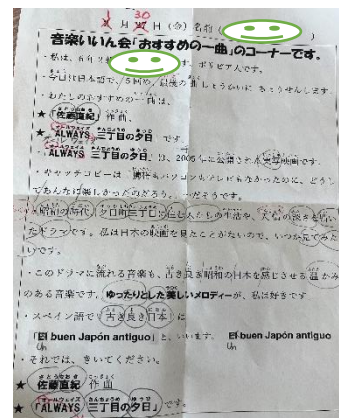 月 30 日 (金) 名前 ( )
音楽いいん会「おすすめの一曲」のコーナーです。
・私は、6年2組 です。ボリビア人です。
・今日は日本語で、5回め、最後の曲しょうかいにちょうせんします
・わたしのおすすめの一曲は、
★「佐藤直紀」作曲、
★「ALWAYS 三丁目の夕日」です。
「ALWAYS 三丁目の夕日」は、2005年に公開された実写映画です。
・キャッチコピーは「携帯もパソコンもテレビもなかったのに、どうし
てあんなに楽しかったのだろう。」だそうです。
昭和の時代、夕日町三丁目に住む人たちの生活や、
たドラマです。私は日本の映画を見たことがないので、いつか見てみた
いです。
・このドラマに流れる音楽も、古き良き昭和の日本を感じさせる温かみ
のある音楽です。ゆったりとした美しいメロディーが、私は好きです
・スペイン語で「古き良き日本」に
「El buen Japón antiguo」と、いいます。 El buen Japón antiguo
Un Un
・それでは、きいてください。
★ 佐藤直紀 作曲
★「ALWAYS 三丁目の夕日」です。